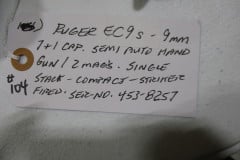 RUGER EC9s - 9mm
7+1 CAP. SEMI AUTO HAND
GUN / 2 MAGS. SINGLE
STACK - COMPACT - STRIKER
FIRED. SER-NO. 453-8257
# 104